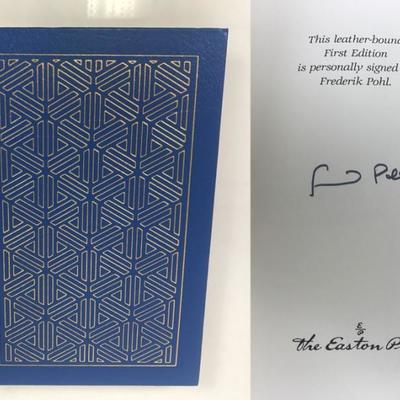 This leather-bound
First Edition
is personally signed
Frederik Pohl.
The Easton P